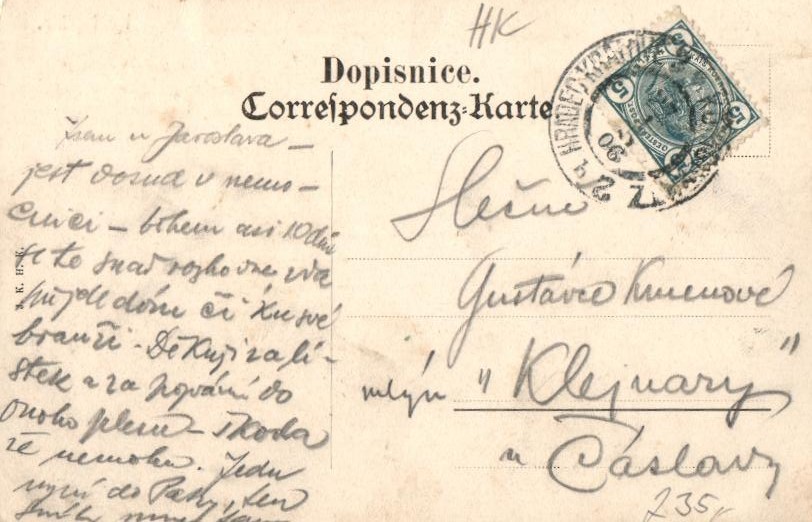 HK
Dopisnice.
Correſpondenz-Karte
HRADEC KRÁLOVÉ
5 5 5
06
Jsem u Jaroslava –
jest dosud v nemo-
cnici – během asi 10 dnů
se to snad rozhodne zda
půjde domů či ku své
branži. Děkuji za lí-
stek a za pozvání do
onoho plesu – škoda
že nemohu. Jedu
nyní do Paky, ten
Slečně
Gustávce Kmenové
mlýn „Klejnary"
u Čáslavi
K. H. K.
235,-